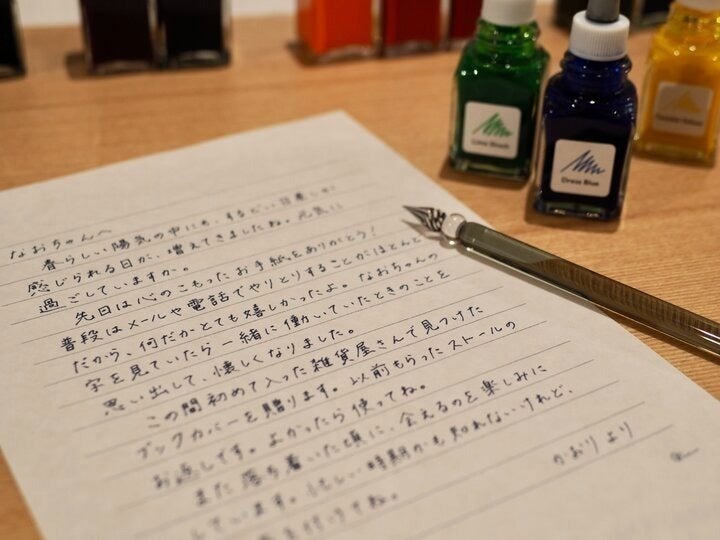 なおちゃんへ
春らしい陽気の中にも、するどい日差しが
感じられる日が、増えてきましたね。元気に
過ごしていますか。
先日は心のこもったお手紙をありがとう!
普段はメールや電話でやりとりすることがほとんど
だから、何だかとても嬉しかったよ。なおちゃんの
字を見ていたら一緒に働いていたときのことを
思い出して、懐しくなりました。
この間初めて入った雑貨屋さんで見つけた
ブックカバーを贈ります。以前もらったストールの
お返しです。よかったら使ってね。
また落ち着いた頃に、会えるのを楽しみに
しています。忙しい時期かも知れないけれど、
気を付けてね。
かおりより
Lime Shock
Direse Blue